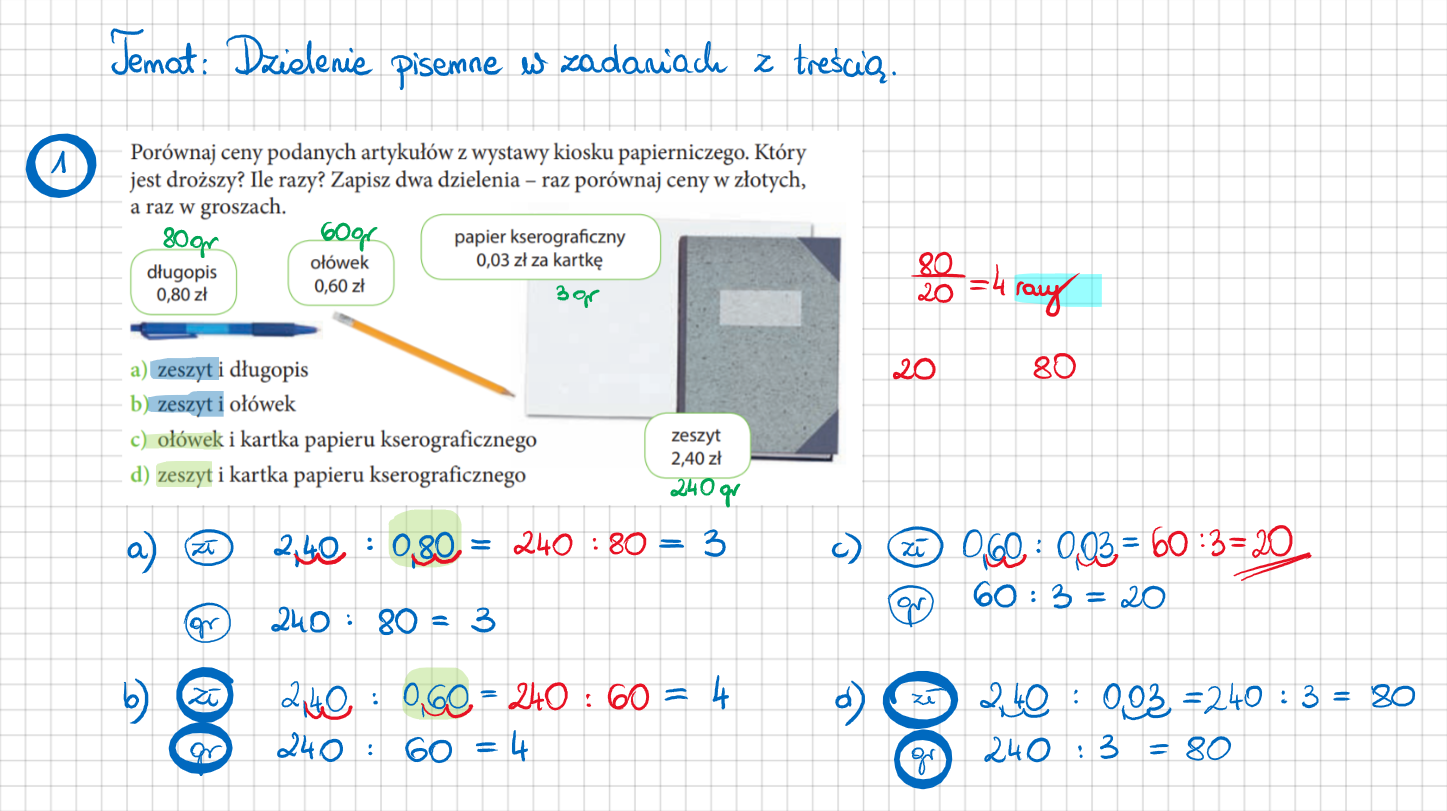 Temat: Dzielenie pisemne w zadaniach z treścią.
1
Porównaj ceny podanych artykułów z wystawy kiosku papierniczego. Który
jest droższy? Ile razy? Zapisz dwa dzielenia – raz porównaj ceny w złotych,
a raz w groszach.
80gr
długopis
0,80 zł
60gr
ołówek
0,60 zł
papier kserograficzny
0,03 zł za kartkę
3gr
80/20 = 4 razy
20 80
a) zeszyt i długopis
b) zeszyt i ołówek
c) ołówek i kartka papieru kserograficznego
d) zeszyt i kartka papieru kserograficznego
zeszyt
2,40 zł
240 gr
a) zł 2,40 : 0,80 = 240 : 80 = 3
gr 240 : 80 = 3
b) zł 2,40 : 0,60 = 240 : 60 = 4
gr 240 : 60 = 4
c) zł 0,60 : 0,03 = 60 : 3 = 20
gr 60 : 3 = 20
d) zł 2,40 : 0,03 = 240 : 3 = 80
gr 240 : 3 = 80